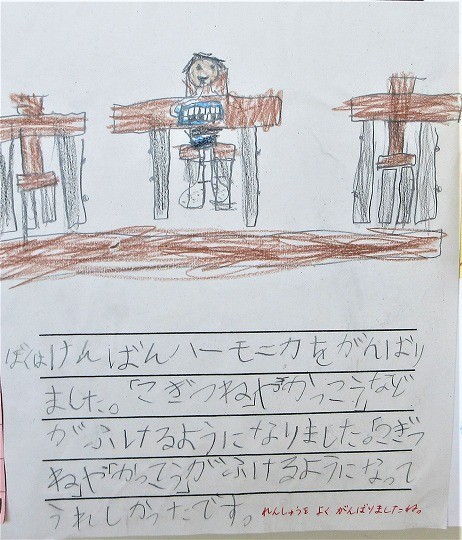 ぼくはけんばんハーモニカをがんばり
ました。「こぎつね」や「かっこう」など
がふけるようになりました。「こぎつ
ね」や「かっこう」がふけるようになって
うれしかったです。
れんしゅうを よく がんばりましたね。